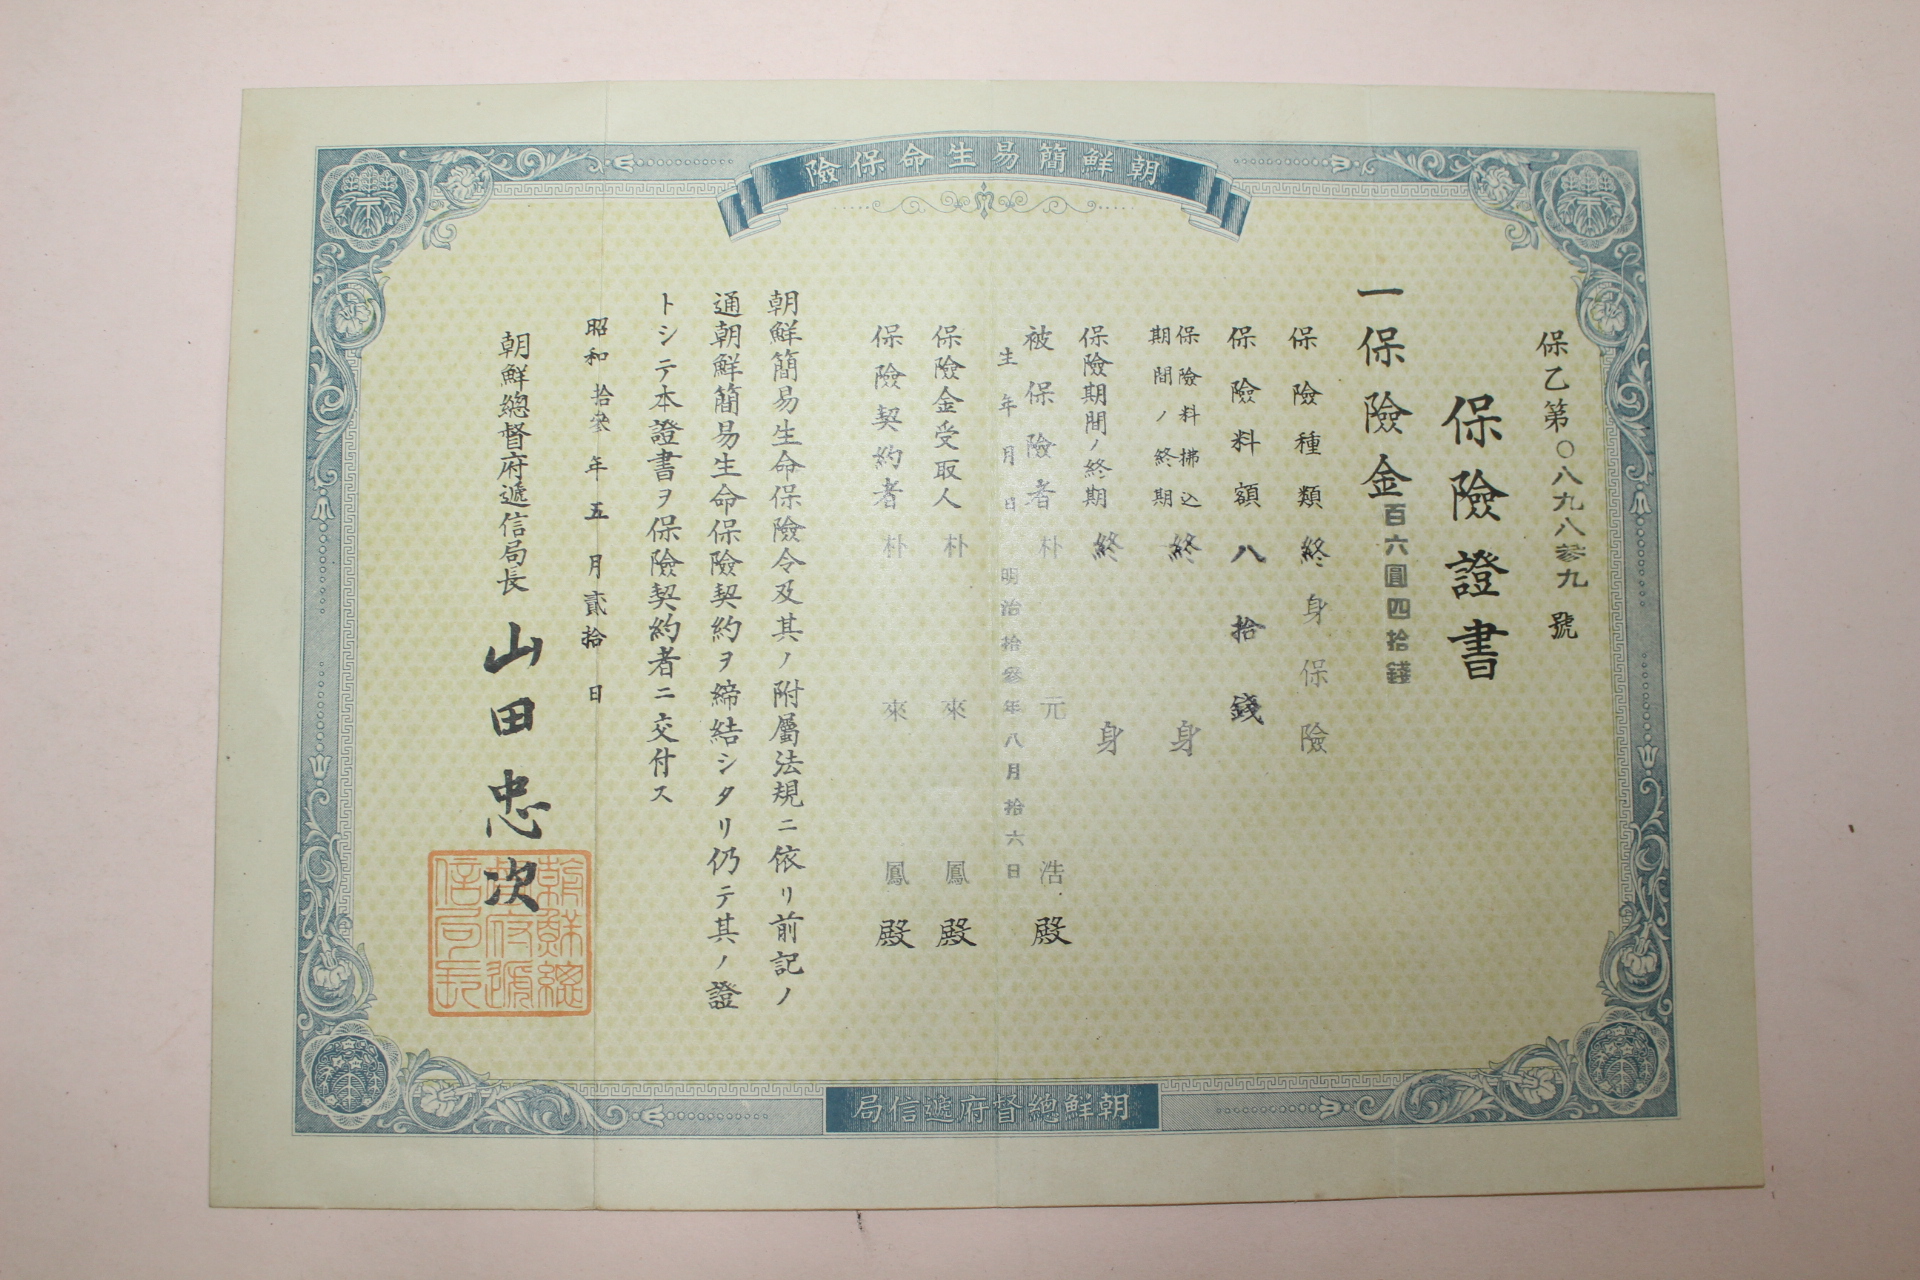 朝鮮簡易生命保險
保乙第〇八九八參九號
保險證書
一保險金百六圓四拾錢
保險種類終身保險
保險料額八拾錢
保險料拂込
期間ノ終期終身
保險期間ノ終期終身
被保險者朴元浩殿
生年月日明治拾參年八月拾六日
保險金受取人朴來鳳殿
保險契約者朴來鳳殿
朝鮮簡易生命保險令及其ノ附屬法規ニ依リ前記ノ
通朝鮮簡易生命保險契約ヲ締結シタリ仍テ其ノ證
トシテ本證書ヲ保險契約者ニ交付ス
昭和拾參年五月貳拾日
朝鮮總督府遞信局長山田忠次
朝鮮總
督府遞
信局長
朝鮮總督府遞信局